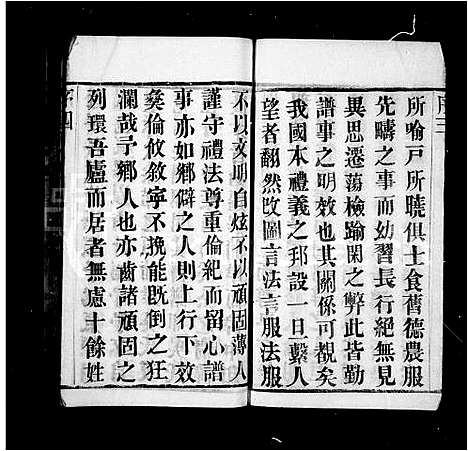 所喻戸所曉俱士食舊德農服
先疇之事而幼習長行絕無見
異思遷蕩檢踰閑之弊此皆勤
譜事之明效也其關係可觀矣
我國本禮義之邦設一旦繫人
望者翻然改圖言法言服法服
不以文明自炫不以頑固薄人
謹守禮法尊重倫紀而留心譜
事亦如鄉僻之人則上行下效
彝倫攸敘寧不挽能既倒之狂
瀾哉予鄉人也亦齒諸頑固之
列環吾廬而居者無慮十餘姓
序四